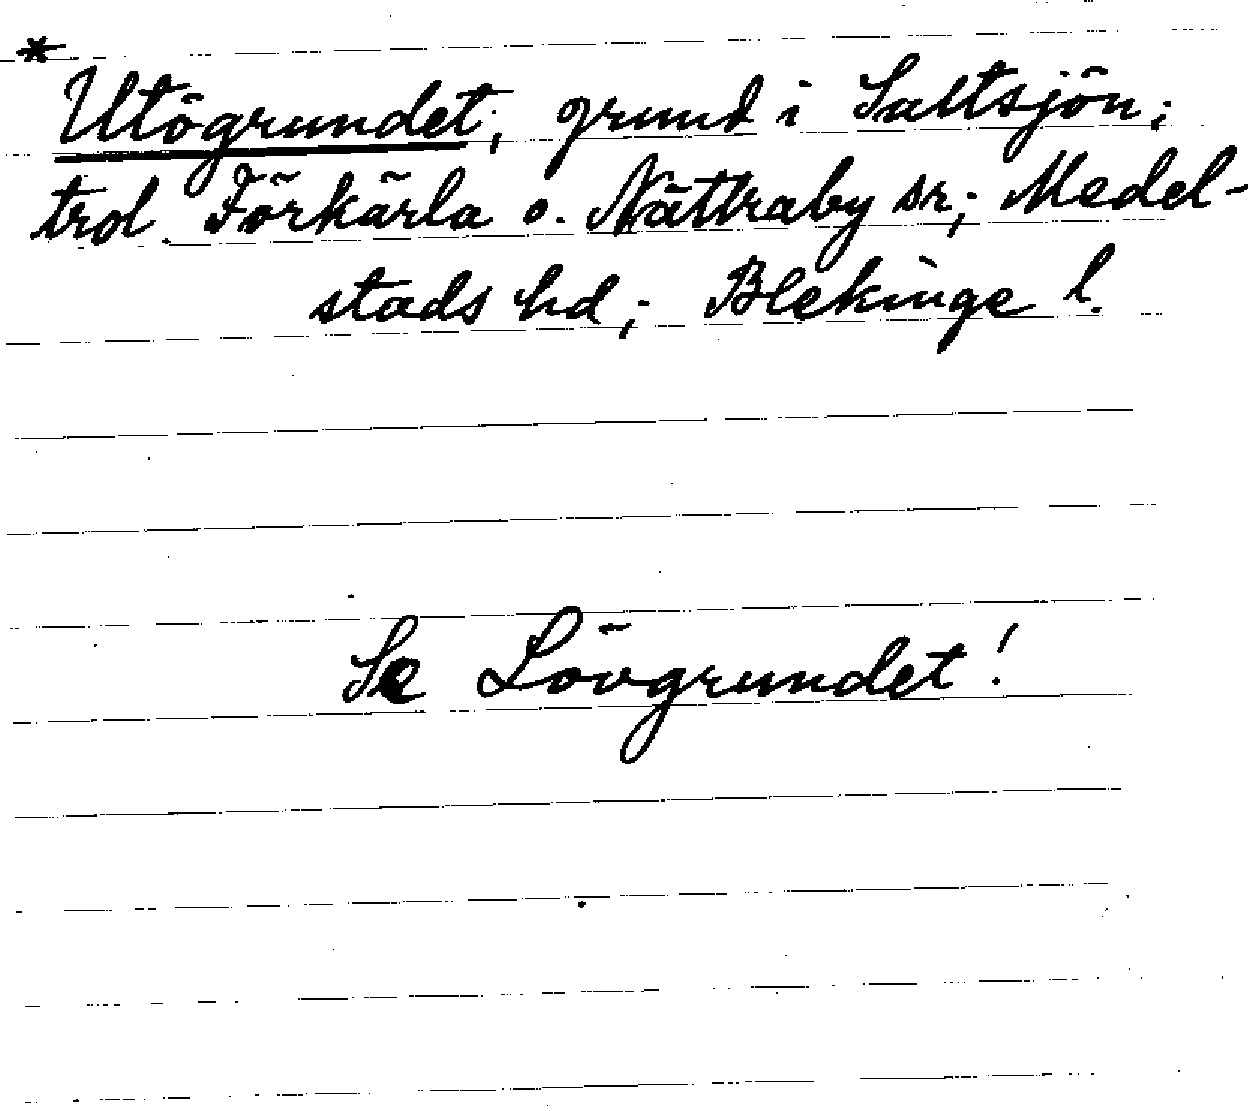 * Utögrundet, grund i Saltsjön;
trol. Förkärla o. Nättraby sr; Medel-
stads hd; Blekinge l.
Se Lövgrundet!